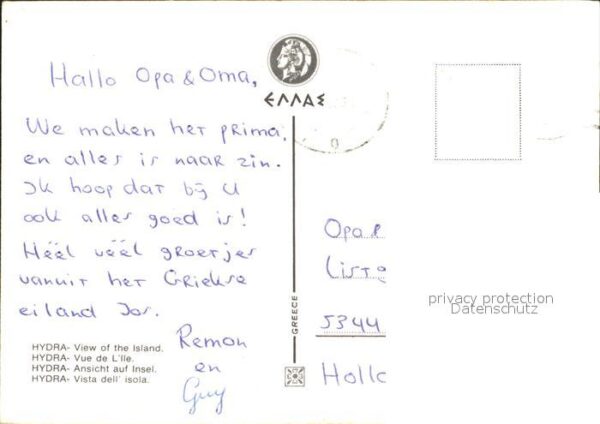 Hallo Opa & Oma,
We maken het prima,
en alles is naar zin.
Ik hoop dat bij U
ook alles goed is!
Héél véél groetjes
vanuit het Griekse
eiland Jos.
Remon
en
Guy
HYDRA- View of the Island.
HYDRA- Vue de L'Ile.
HYDRA- Ansicht auf Insel.
HYDRA- Vista dell' isola.
ΕΛΛΑΣ
GREECE
Opa
5344
privacy protection
Datenschutz